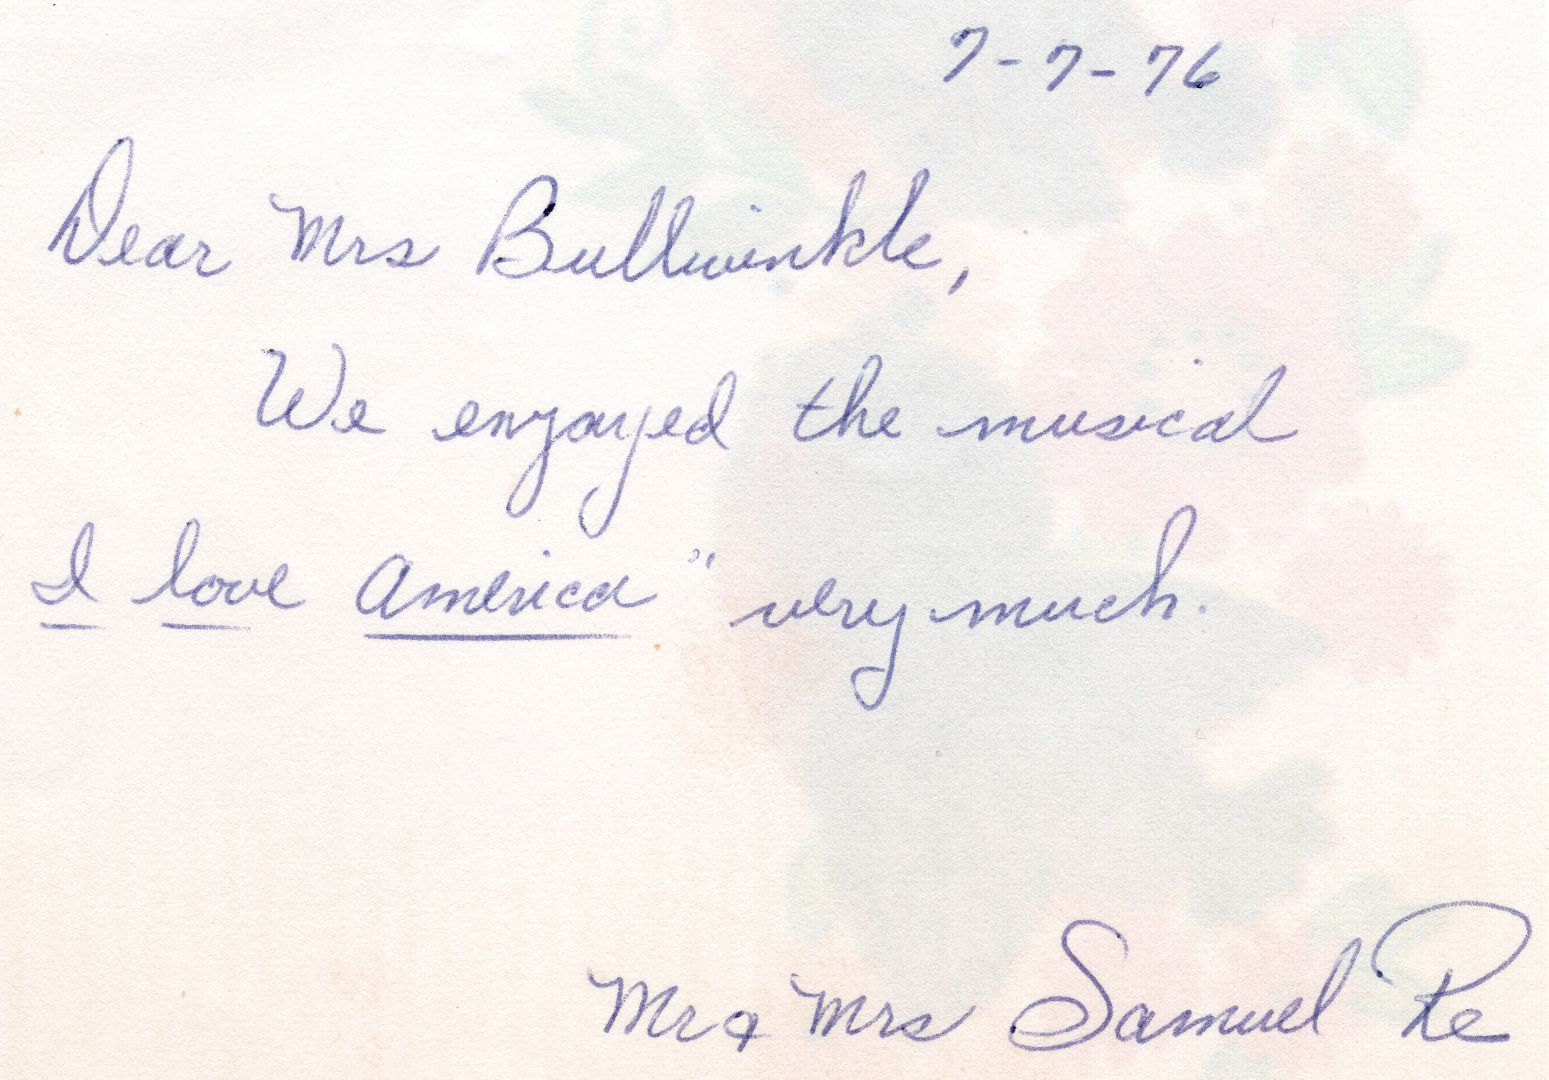 7-7-76
Dear Mrs Bullwinkle,
We enjoyed the musical
I love America" very much.
Mr & Mrs Samuel Re